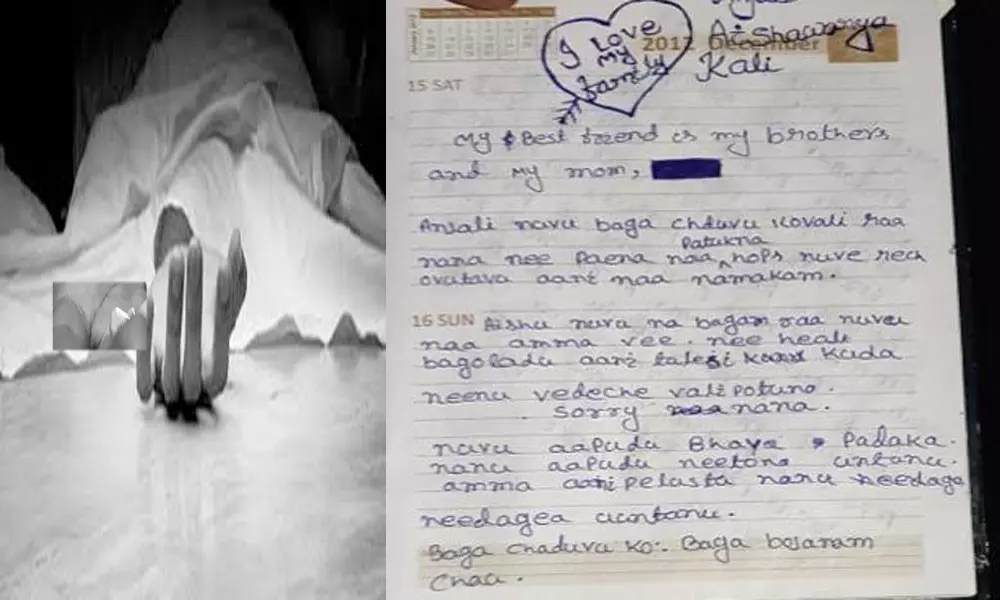 I love
my
family
2012 December
Aishawarya
Kali
15 SAT
My Best friend is my brothers
and my mom,
Anjali nuvu baga chduvu kovali raa
patukna
nana nee paena naa hops nuve nech
ovatava aani naa namakam.
16 SUN Aishu nuvu na bagam raa nuvu
naa amma vee. nee healt
bagoladu aani talesi kuda
neenu vedeche vali potuno.
sorry nana.
nuvu aapudu Bhaya Padaka.
nanu aapudu neetone untanu.
amma ani pelusta nanu needaga
needagea untanu.
Baga chaduvu ko. Baga bojanam
chaa.